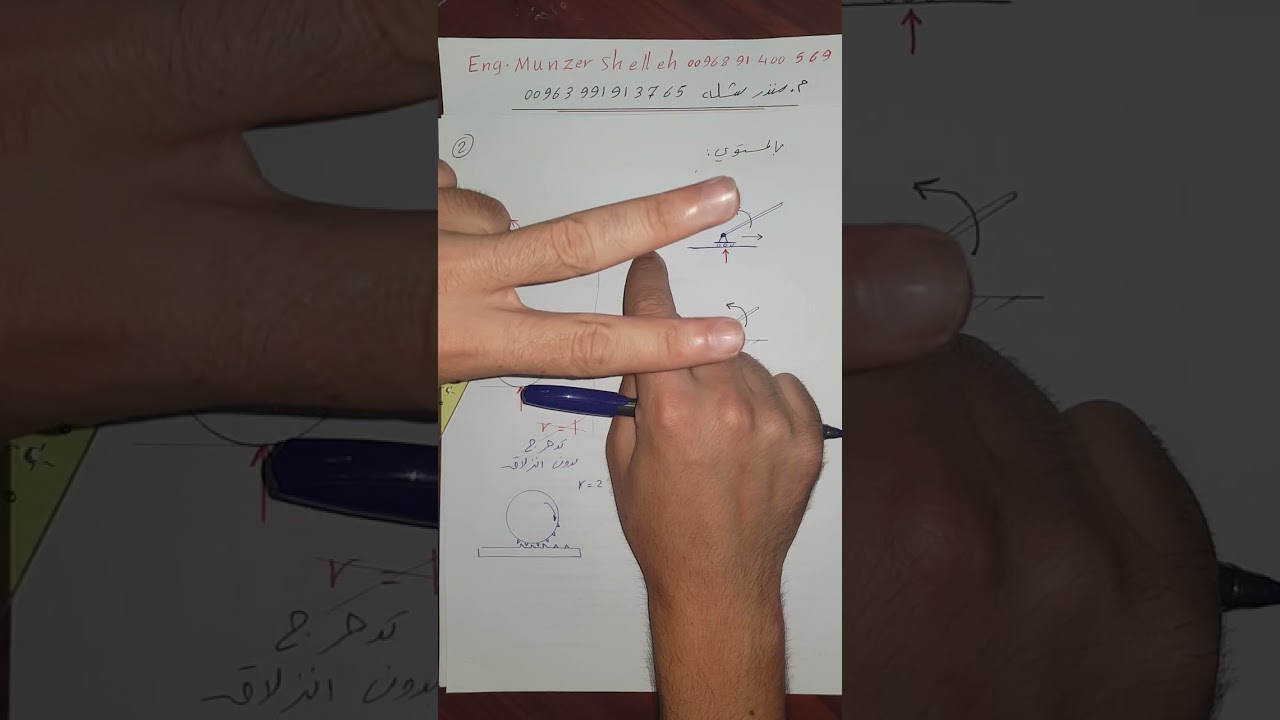 Eng. Munzer Shelleh 00968 91 400 569
م. منذر شله 00963 991913765
②
بالمستوي:
r = 1
تدحرج
بدون انزلاق
r = 2